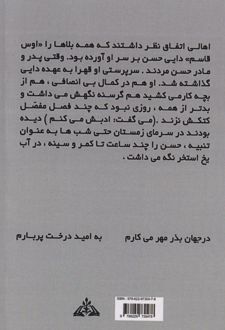 اهالی اتفاق نظر داشتند که همه بلاها را «اوس
قاسم» دایی حسن بر سر او آورده بود. وقتی پدر و
مادر حسن مردند. سرپرستی او قهرا به عهده دایی
گذاشته شد. او هم در کمال بی انصافی ، هم از
بچه کارمی کشید هم گرسنه نگهش می داشت و
بدتر از همه ، روزی نبود که چند فصل مفصل
کتکش نزند .(می گفت: ادبش می کنم ) دیده
بودند در سرمای زمستان حتی شب ها به عنوان
تنبیه ، حسن را چند ساعت تا کمر و سینه ، در آب
یخ استخر نگه می داشت .
درجهان بذر مهر می کارم
به امید درخت پربارم